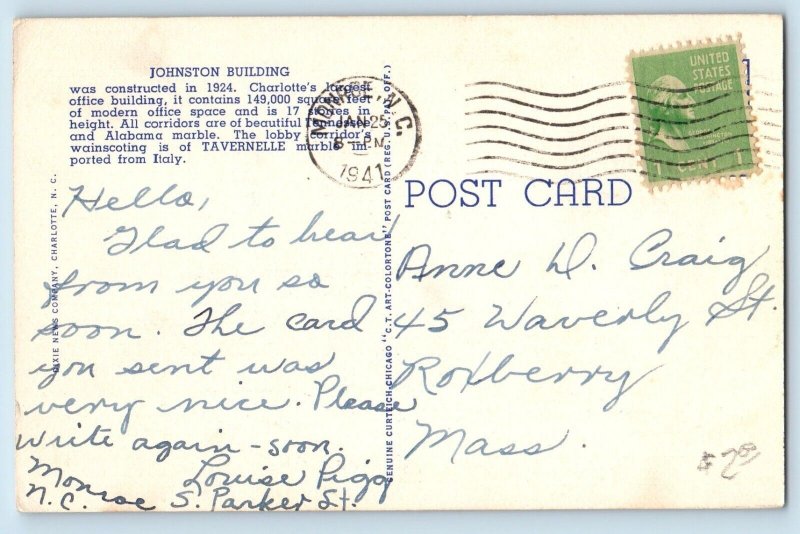 JOHNSTON BUILDING
was constructed in 1924. Charlotte's largest
office building, it contains 149,000 square feet
of modern office space and is 17 stories in
height. All corridors are of beautiful Tennessee
and Alabama marble. The lobby corridor's
wainscoting is of TAVERNELLE marble im-
ported from Italy.
MONROE, N.C.
JAN 25
8-PM
1941
UNITED
STATES
POSTAGE
1 CENT 1
1
POST CARD
DIXIE NEWS COMPANY, CHARLOTTE, N. C.
GENUINE CURTEICH-CHICAGO "C. T. ART-COLORTONE" POST CARD (REG. U. S. PAT. OFF.)
Hello,
Glad to hear
from you so
soon. The card
you sent was
very nice. Please
write again - soon.
Louise Pigg
Monroe S. Parker St.
N.C.
Anne D. Craig
45 Waverly St.
Roxberry
Mass.
$7.00